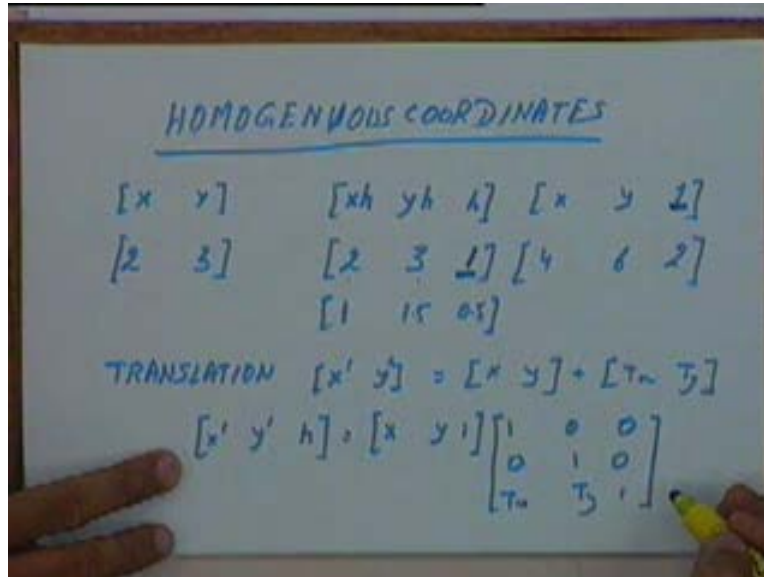 HOMOGENUOUS COORDINATES
[x y] [xh yh h] [x y 1]
[2 3] [2 3 1] [4 6 2]
[1 1.5 0.5]
TRANSLATION [x' y'] = [x y] + [Tx Ty]
[x' y' h] = [x y 1] [1 0 0
0 1 0
Tx Ty 1]